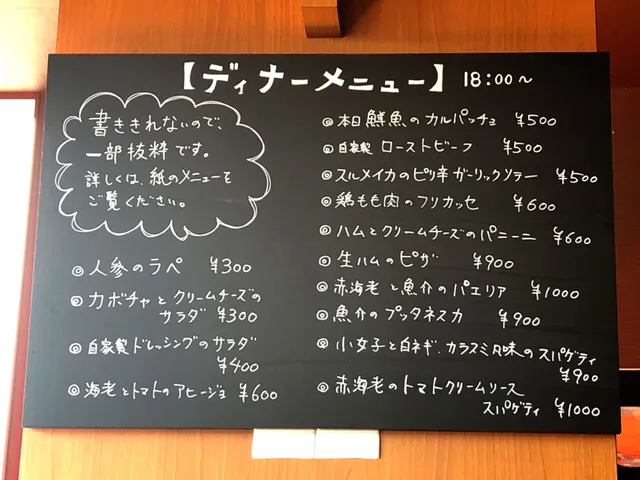 【ディナーメニュー】 18:00～
書ききれないので、
一部抜粋です。
詳しくは、紙のメニューを
ご覧ください。
◎人参のラペ ¥300
◎カボチャとクリームチーズの
サラダ ¥300
◎自家製ドレッシングのサラダ
¥400
◎海老とトマトのアヒージョ ¥600
◎本日鮮魚のカルパッチョ ¥500
◎自家製ローストビーフ ¥500
◎スルメイカのピリ辛ガーリックソテー ¥500
◎鶏もも肉のフリカッセ ¥600
◎ハムとクリームチーズのパニーニ ¥600
◎生ハムのピザ ¥900
◎赤海老と魚介のパエリア ¥1000
◎魚介のプッタネスカ ¥900
◎小女子と白ネギ、カラスミ風味のスパゲティ
¥900
◎赤海老のトマトクリームソース
スパゲティ ¥1000